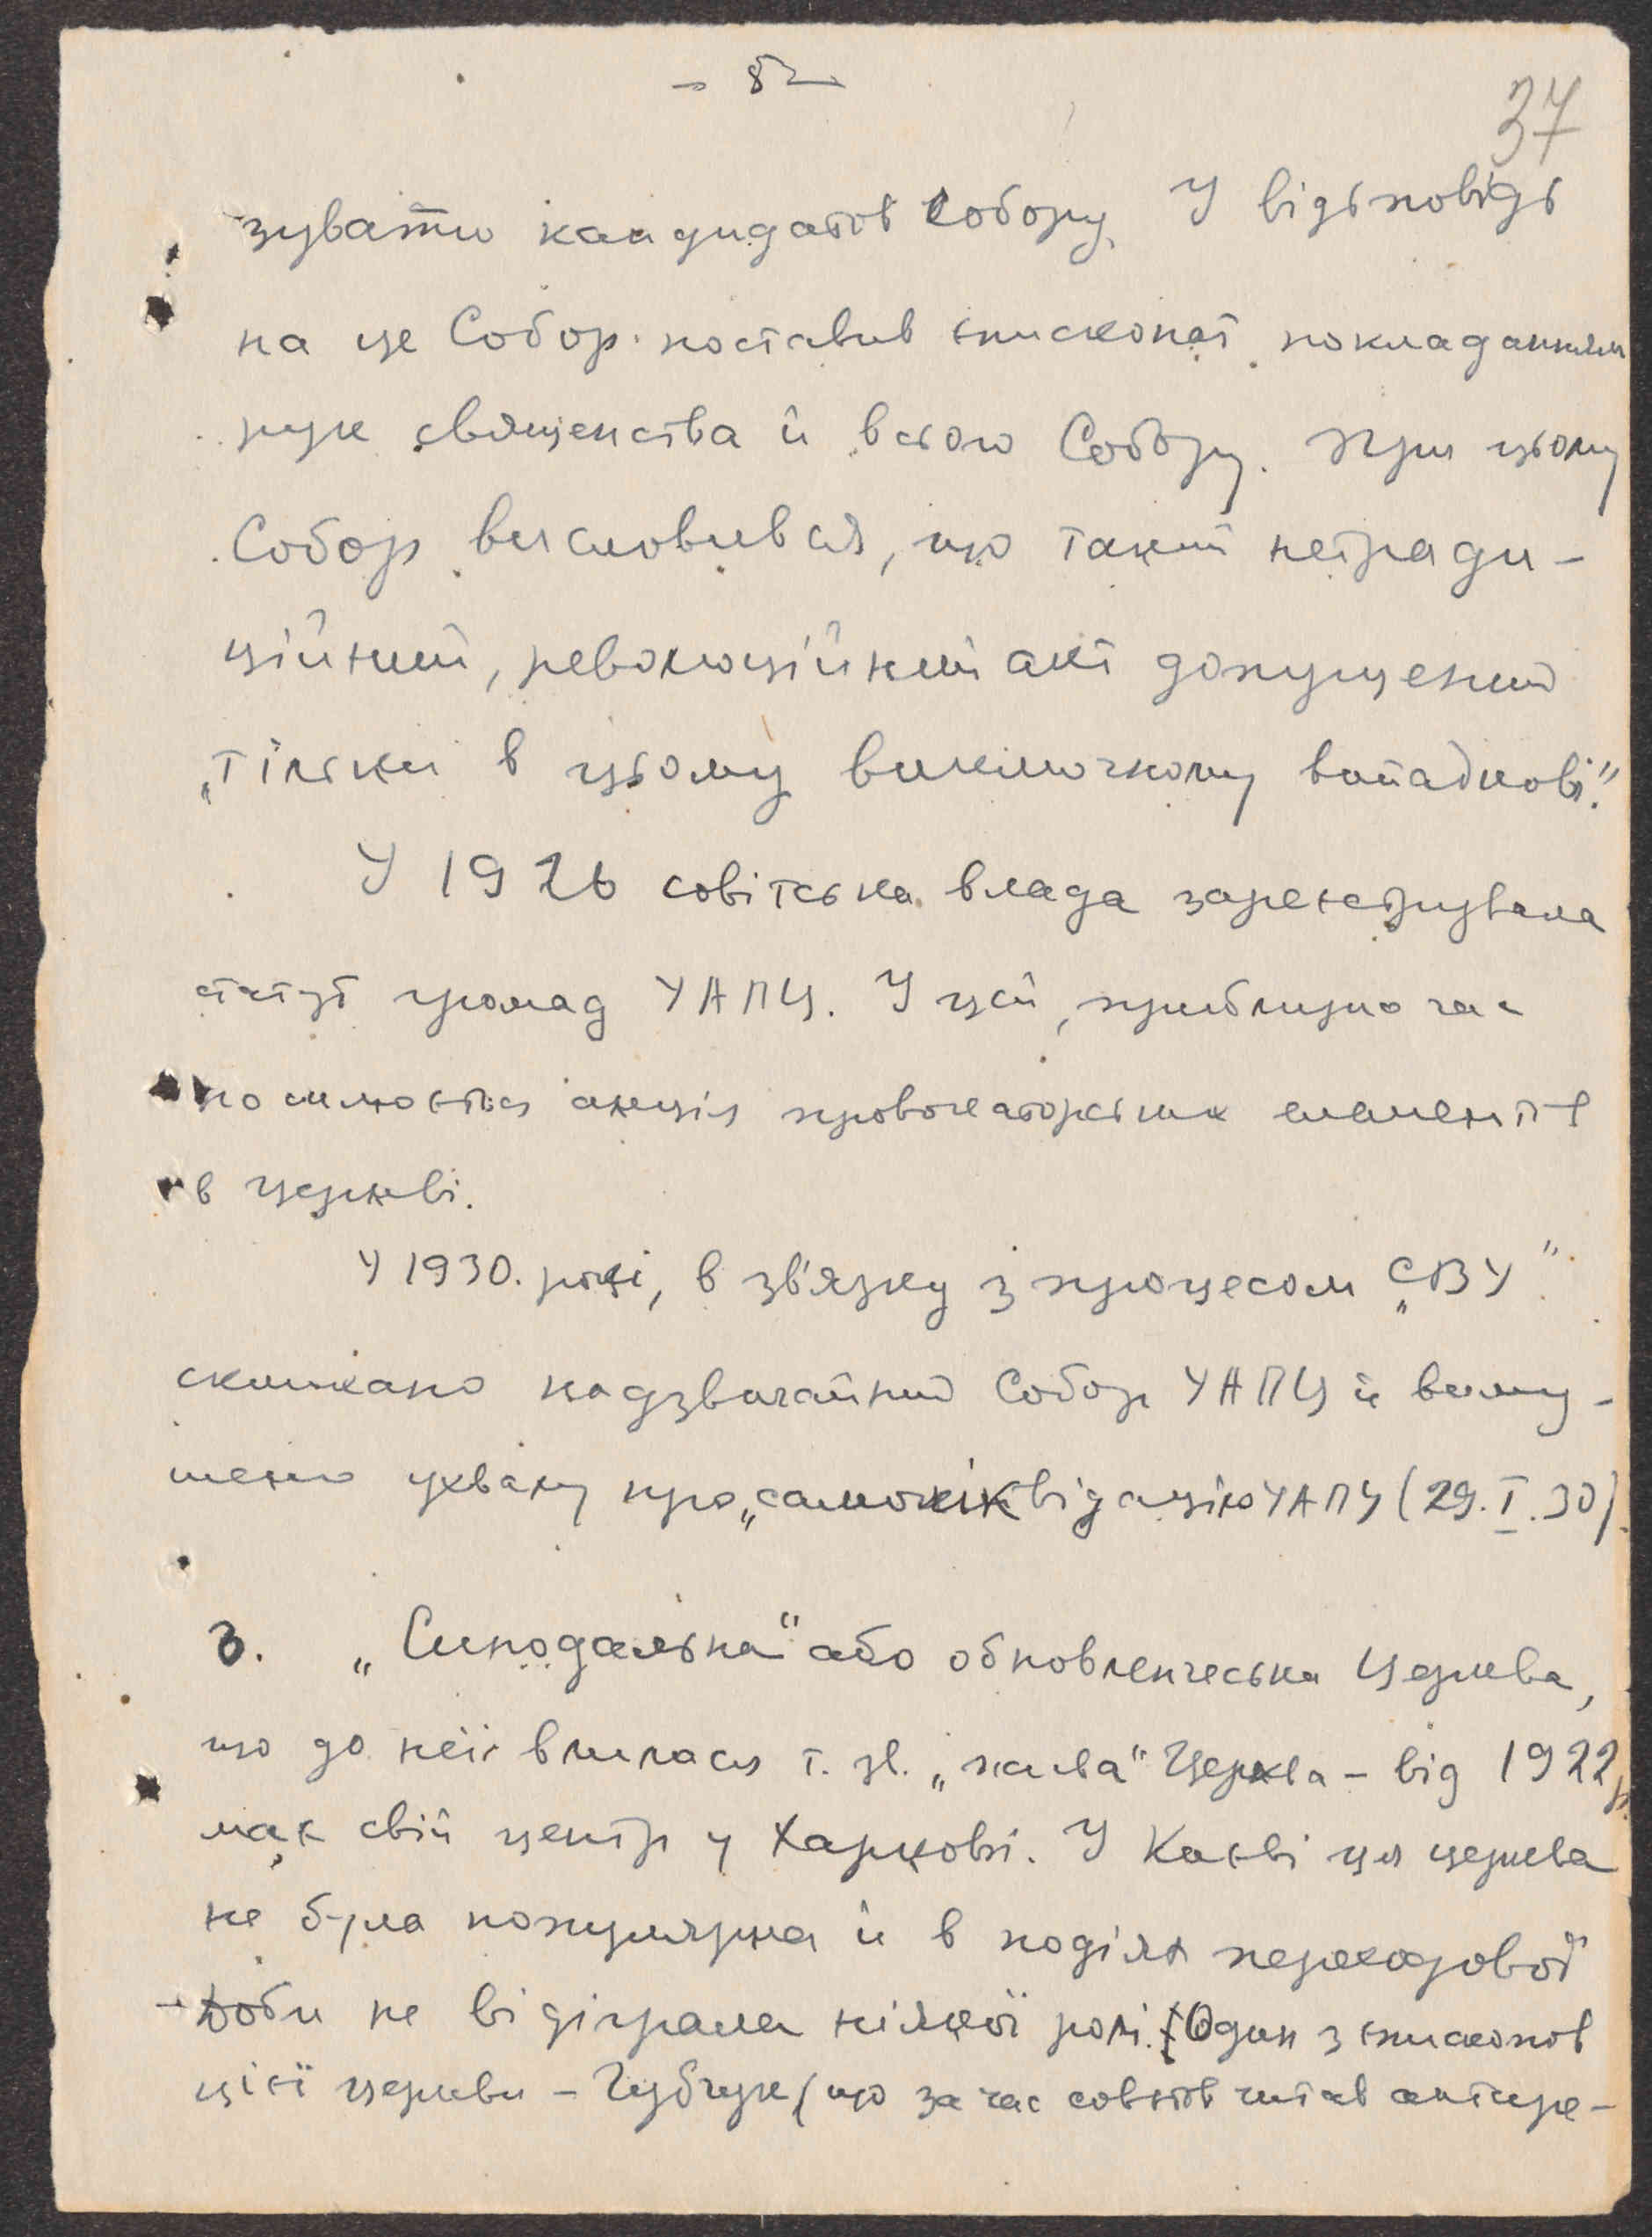 - 8 -
37
зувати кандидатів Собору. У відьповідь
на це Собор поставив єпископат покладанням
рук священства й всього Собору. При цьому
Собор висловився, що такий нетради-
ційний, революційний акт допущений
„тільки в цьому виключному випадкові".
У 1926 совітська влада зареєструвала
статут громад УАПЦ. У цей, приблизно час
посилюється акція провокаторських елементів
в церкві.
У 1930. році, в зв'язку з процесом „СВУ"
скликано надзвичайний Собор УАПЦ й виму-
шено ухвалу про „самоліквідацію УАПЦ (29.I.30).
3. „Синодальна" або обновленчеська Церква,
що до неї влилась т. зв. „жива" Церква – від 1922 р.
має свій центр у Харкові. У Києві ця церква
не була популярна й в подіях переходової
доби не відіграла ніякої ролі. (Один з єпископів
цієї церкви – Чубчук (що за час совєтів читав антире-